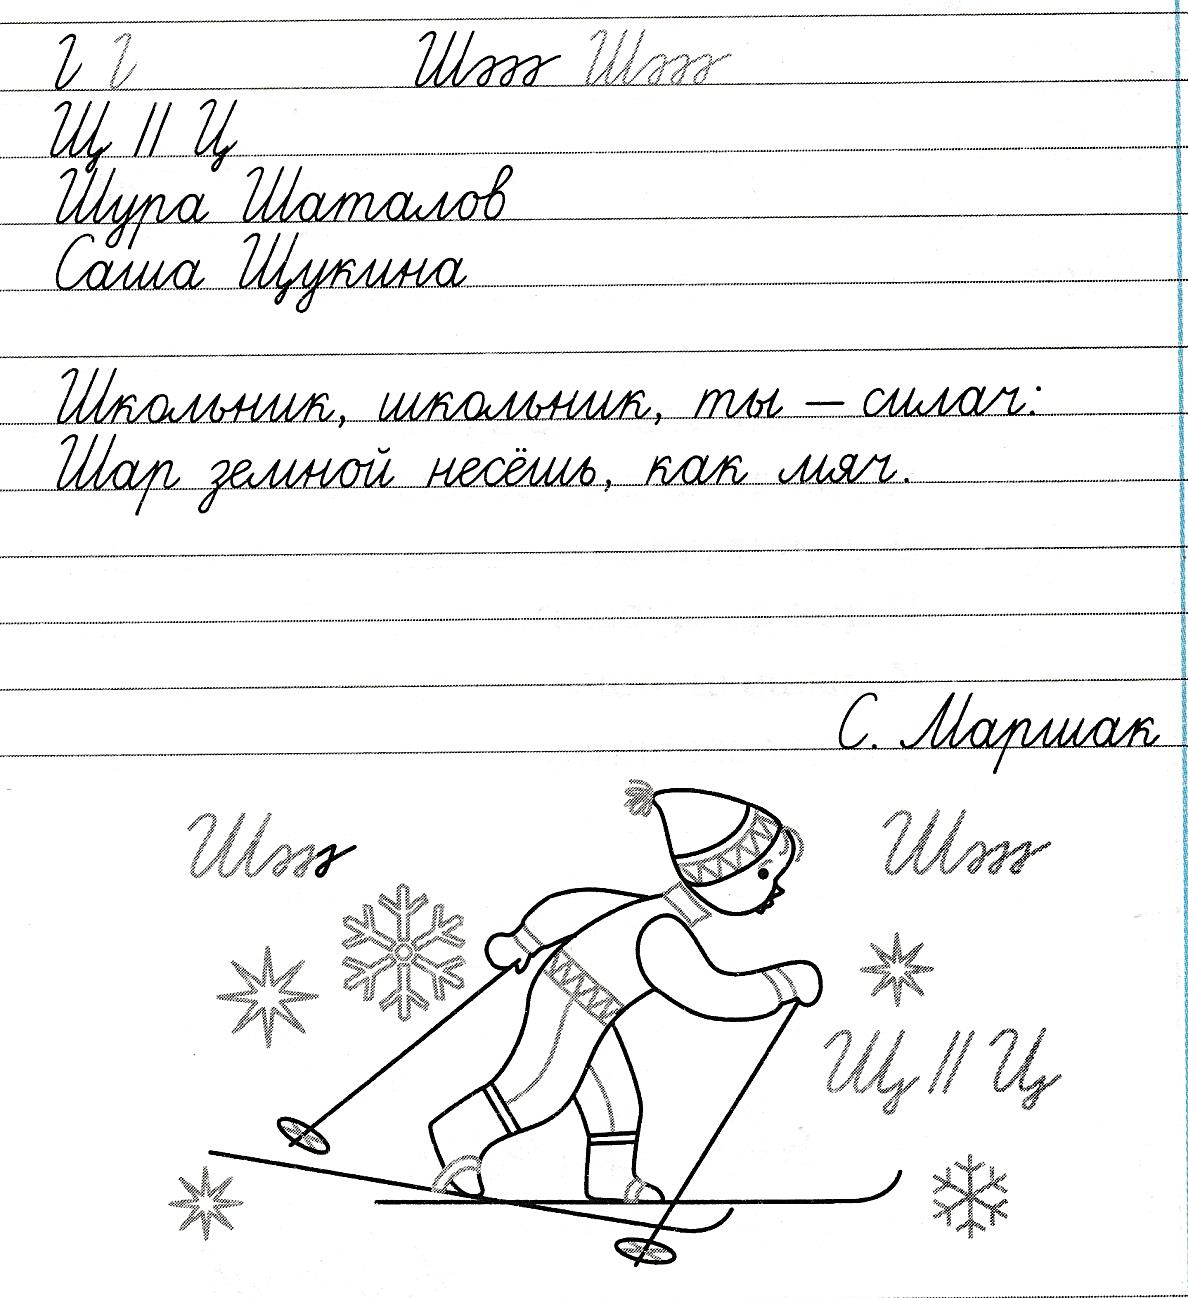 Ш Ш
Щ || Ц
Шура Шаталов
Саша Щукина
Школьник, школьник, ты — силач:
Шар земной несёшь, как мяч.
С. Маршак
Ш Ш
Щ || Ц